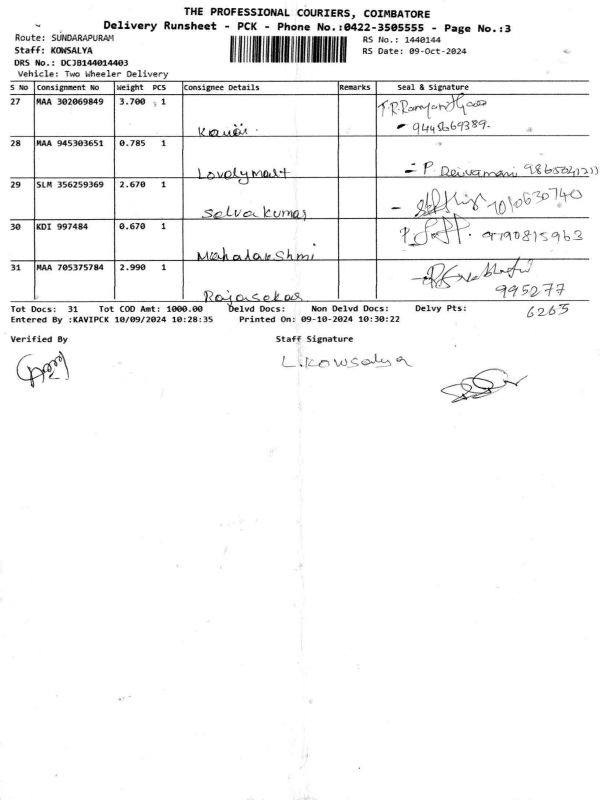 THE PROFESSIONAL COURIERS, COIMBATORE
Delivery Runsheet - PCK - Phone No.:0422-3505555 - Page No.:3
Route: SUNDARAPURAM RS No.: 1440144
Staff: KOWSALYA RS Date: 09-Oct-2024
DRS No.: DCJB144014403
Vehicle: Two Wheeler Delivery
S No Consignment No Weight PCS Consignee Details Remarks Seal & Signature
27 MAA 302069849 3.700 1
9445669389.
28 MAA 945303651 0.785 1
Lovelymart P.
29 SLM 356259369 2.670 1
Selvakumar 7010630740
30 KDI 997484 0.670 1 9790815963
Mahalakshmi
31 MAA 705375784 2.990 1
Rajasekar 995277
Tot Docs: 31 Tot COD Amt: 1000.00 Delvd Docs: Non Delvd Docs: Delvy Pts: 6265
Entered By :KAVIPCK 10/09/2024 10:28:35 Printed On: 09-10-2024 10:30:22
Verified By Staff Signature
L.Kowsalya